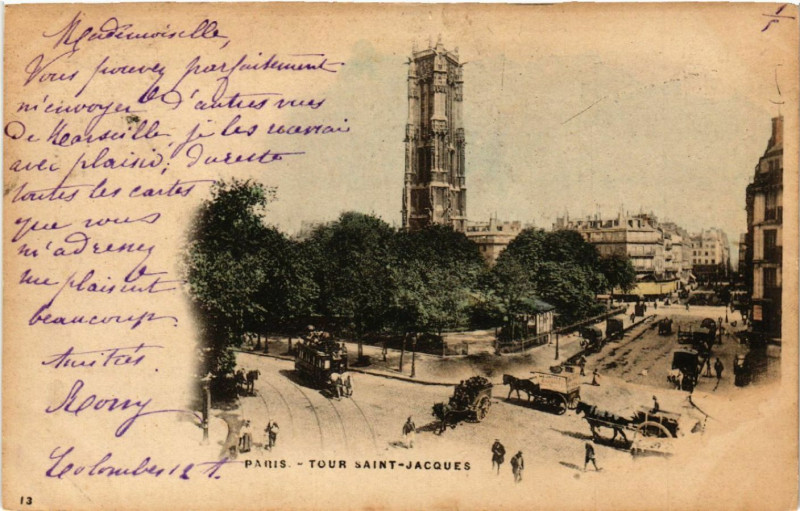 1/5
Mademoiselle,
Vous pouvez parfaitement
m'envoyer d'autres vues
de Marseille je les recevrai
avec plaisir; du reste
toutes les cartes
que vous
m'adressez
me plaisent
beaucoup.
Amitiés.
Colombes
PARIS. - TOUR SAINT-JACQUES
13